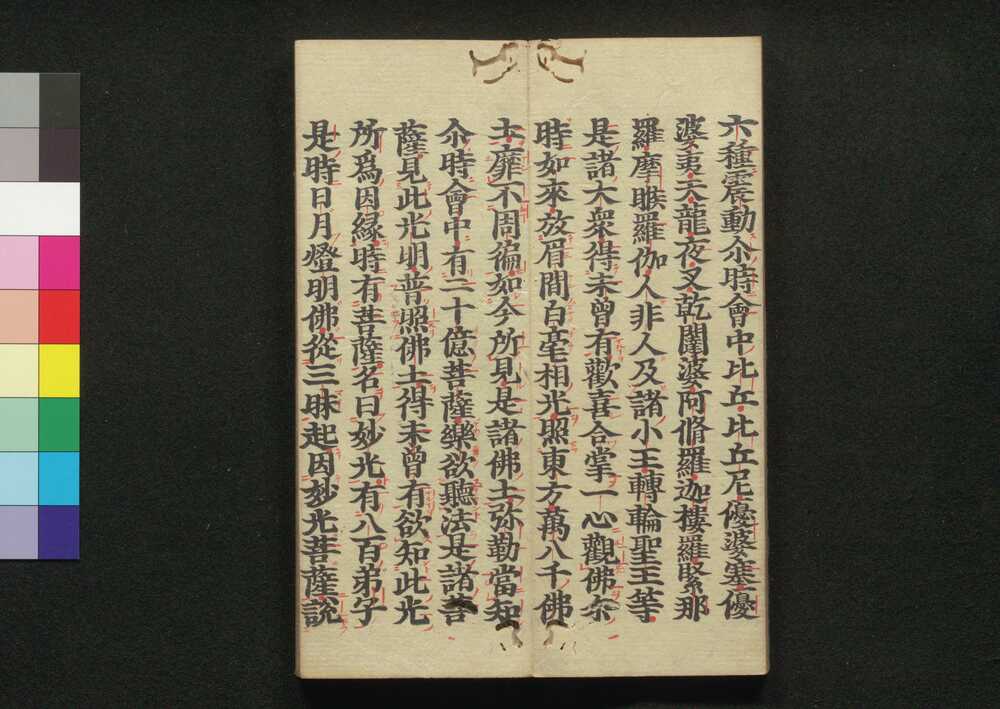 六種震動尒時會中比丘比丘尼優婆塞優
婆夷天龍夜叉乾闥婆阿脩羅迦樓羅緊那
羅摩睺羅伽人非人及諸小王轉輪聖王等
是諸大衆得未曾有歡喜合掌一心觀佛尒
時如來放眉間白毫相光照東方萬八千佛
土靡不周徧如今所見是諸佛土弥勒當知
尒時會中有二十億菩薩樂欲聽法是諸菩
薩見此光明普照佛土得未曾有欲知此光
所爲因縁時有菩薩名曰妙光有八百弟子
是時日月燈明佛從三昧起因妙光菩薩說